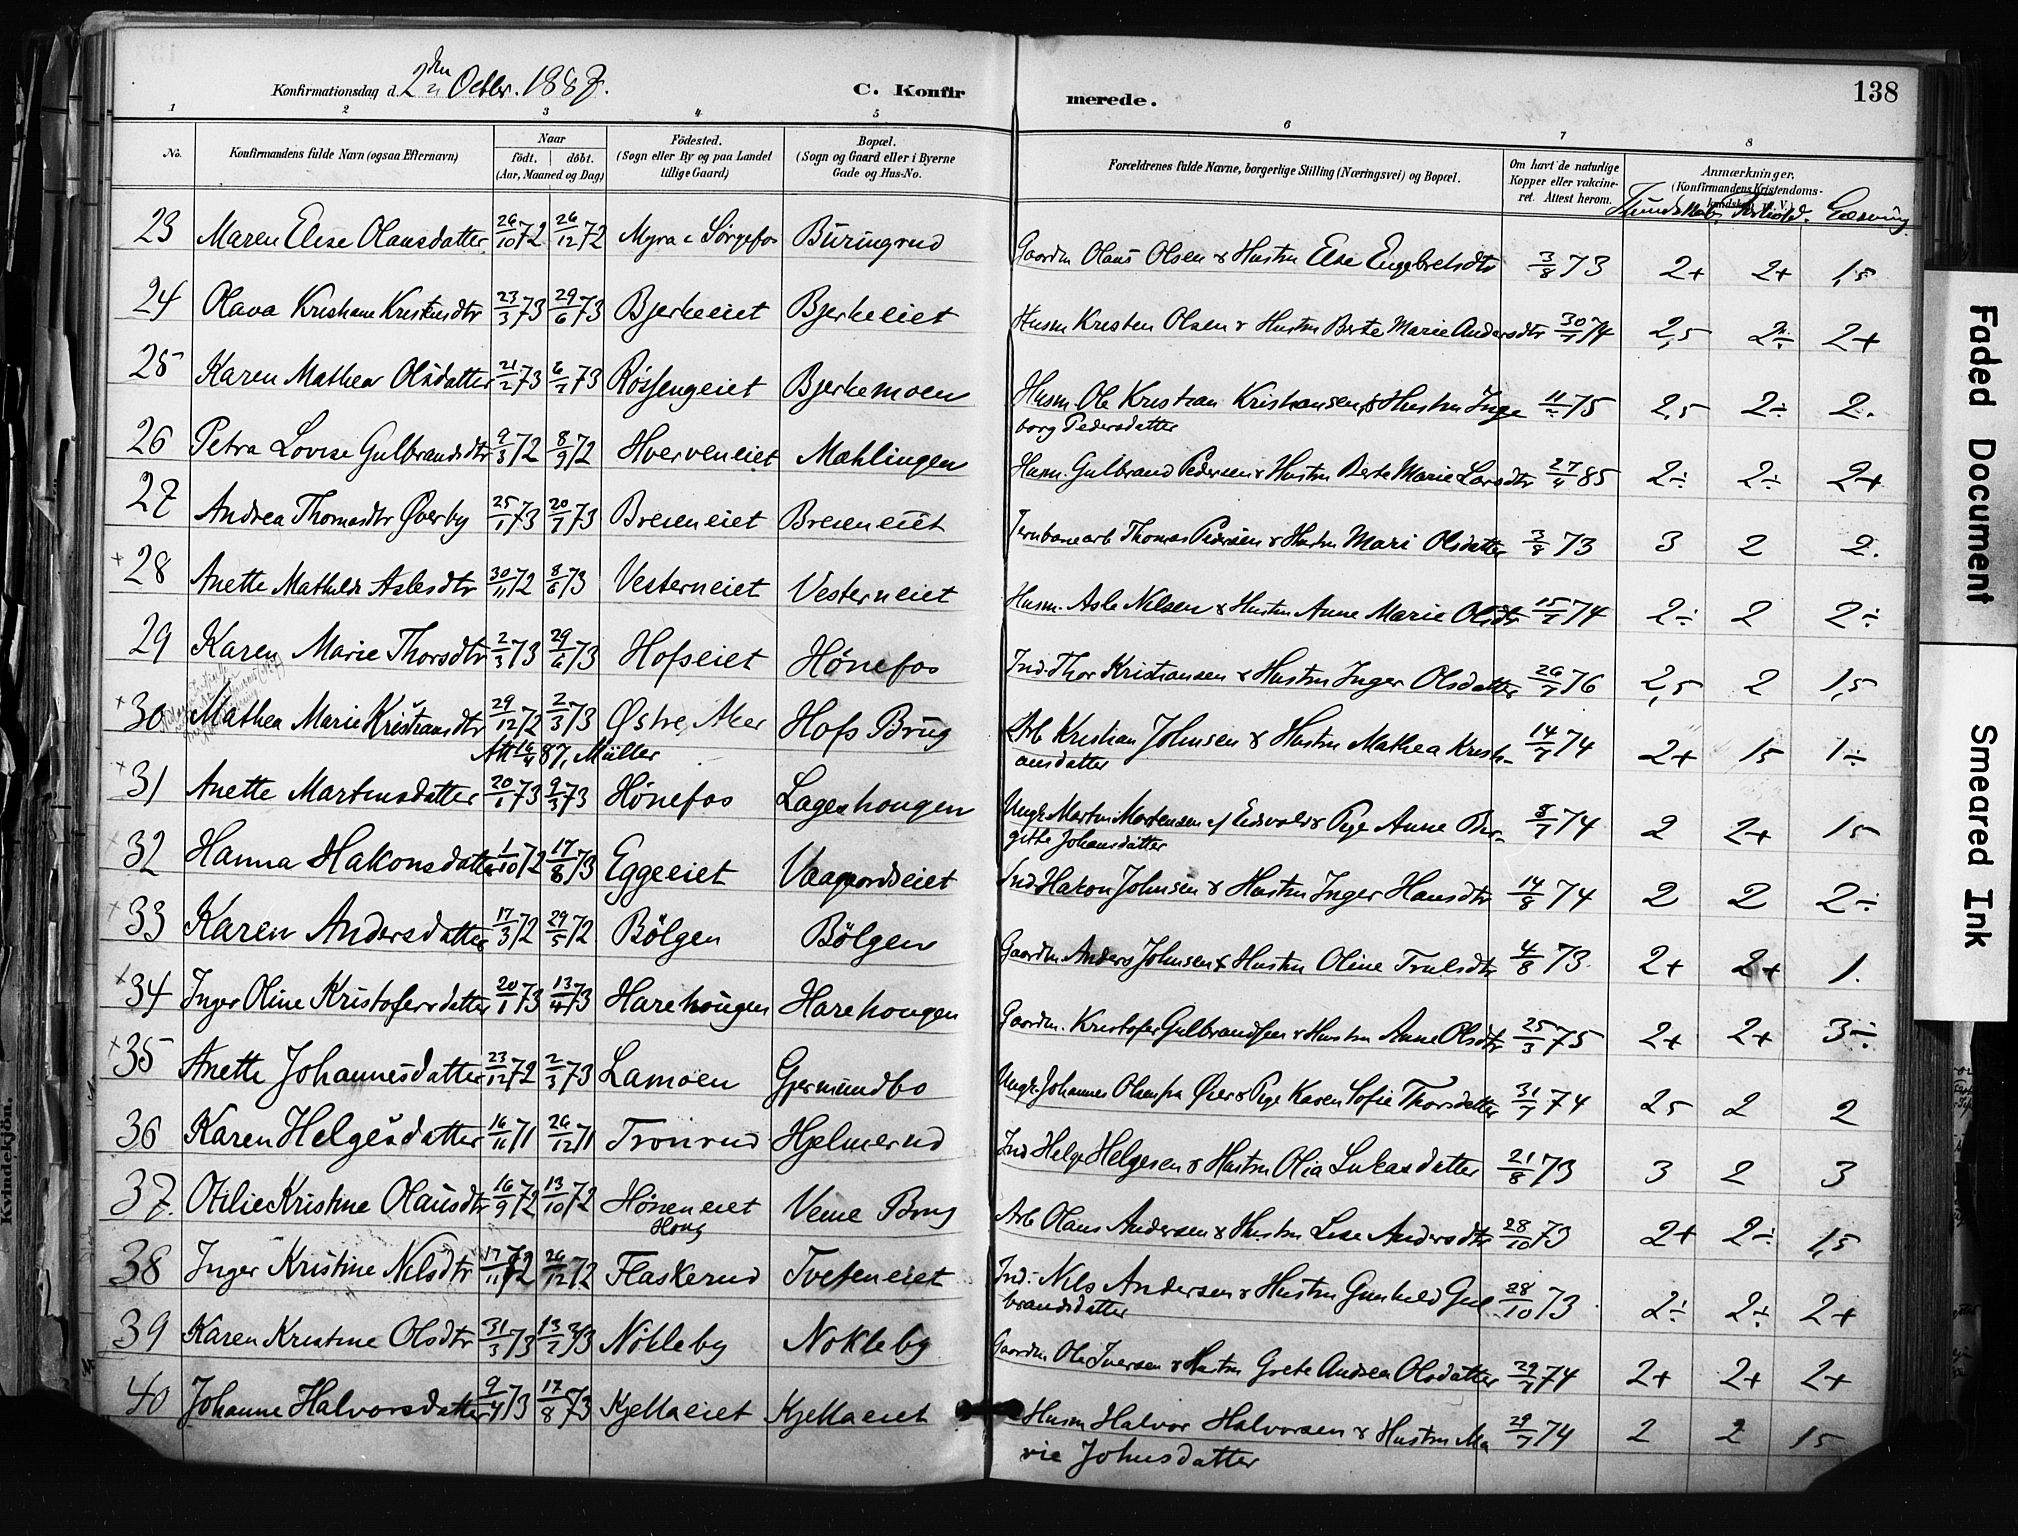 Konfirmationsdag d. 2den Octbr. 1887.
C. Konfirmerede.
138
1 2 3 4 5 6 7 8
No.
Konfirmandens fulde Navn (ogsaa Efternavn)
Naar
födt. | döbt.
(Aar, Maaned og Dag)
Födested.
(Sogn eller By og paa Landet
tillige Gaard)
Bopæl.
(Sogn og Gaard eller i Byerne
Gade og Hus-No.
Forældrenes fulde Navne, borgerlige Stilling (Næringsvei) og Bopæl.
Om havt de naturlige
Kopper eller vakcine-
ret. Attest herom.
Anmærkninger.
(Konfirmandens Kristendoms-
kundskab o. s. V.)
Kundskab. Forhold. Læsning
23 Maren Elise Olausdatter 26/10 72 26/12 72 Myra u Sørgefos Büringrud Gaardm Olaus Olsen & Hustru Else Engebretsdtr 3/8 73 2+ 2+ 1,5
24 Olava Kristiane Kristensdtr 23/3 73 29/6 73 Bjerkeeiet Bjerkeeiet Husm Kristen Olsen & Hustru Berte Marie Andersdtr 30/7 74 2,5 2÷ 2+
25 Karen Mathea Olsdatter 21/2 73 6/7 73 Røssengeiet Bjerkemoen Husm. Ole Kristian Kristiansen & Hustru Inge
borg Pedersdatter 75 2,5 2÷ 2.
26 Petra Lovise Gulbrandsdtr 9/3 72 8/9 72 Hverveneiet Mahlingen Husm. Gulbrand Pedersen & Hustru Berte Marie Larsdtr 27/4 85 2÷ 2÷ 2+
27 Andrea Thomasdtr Øverby 25/1 73 20/7 73 Breseneiet Breseneiet Jernbanearb Thomas Pedersen & Hustru Mari Olsdatter 3/8 73 3 2 2.
+ 28 Anette Mathilde Aslesdtr 30/11 72 8/6 73 Vesterneiet Vesterneiet Husm. Asle Nilsen & Hustru Anne Marie Olsdtr 15/7 74 2÷ 2 2÷
29 Karen Marie Thorsdtr 2/3 73 29/6 73 Hofseiet Hönefos Ind. Thor Kristiansen & Hustru Inger Olsdatter 26/7 76 2,5 2 1,5
+ 30 Mathea Marie Kristiansdtr 29/12 72 2/3 73 Østre Aker Hofs Brug Arb Kristian Johnsen & Hustru Mathea Kristi-
ansdatter 14/7 74 2+ 15 1÷
Att 16/4 87, Müller
+ 31 Anette Martinsdatter 20/1 73 9/3 73 Hönefos Lageshougen Ungk. Martin Mortensen af Eidsvold & Pige Anne Bir-
gitte Johansdatter 8/7 74 2 2+ 15
32 Hanna Hakonsdatter 1/10 72 17/8 73 Eggeeiet Vaagaardseiet Ind. Hakon Johnsen & Hustru Inger Hansdtr 14/8 74 2 2 2÷
+ 33 Karen Andersdatter 17/3 72 29/5 72 Bölgen Bölgen Gaardm. Anders Johnsen & Hustru Oline Trulsdtr 4/8 73. 2+ 2+ 1.
+ 34 Inger Oline Kristofersdatter 20/1 73 13/4 73 Harehougen Harehougen Gaardm. Kristofer Gulbrandsen & Hustru Anne Olsdtr 25/3 75 2+ 2+ 3÷
+ 35 Anette Johannesdatter 23/12 72 2/3 73 Lamoen Gjermundbo Ungk. Johannes Olsen fra Øier & Pige Karen Sofie Thorsdatter 31/7 74 25 2 2
36 Karen Helgesdatter 16/11 71 26/12 71 Tronrud Hjelmerud Ind Helge Helgesen & Hustru Olia Lukasdatter 21/8 73 3 2 3
37. Otilie Kristine Olausdtr 16/9 72 13/10 72 Höneneiet
Houg Veme Brug Arb Olaus Andersen & Hustru Lise Andersdtr 28/10 73 2+ 2÷ 1,5
38 Inger Kristine Nilsdtr 17/11 72 26/12 72 Flaskerud Tveteneiet Ind. Nils Andersen & Hustru Gunhild Gul
brandsdatter 28/10 73 2÷ 2÷ 2+
39 Karen Kristine Olsdtr 31/3 73 13/7 73 Nökleby Nökleby Gaardm Ole Iversen & Hustru Grete Andrea Olsdatter 29/7 74 2+ 2+ 2+
40 Johanne Halvorsdatter 9/4 73 17/8 73 Kjellaeiet Kjellaeiet Husm Halvor Halvorsen & Hustru Ma
rie Johnsdatter 29/7 74 2 2 15
Kvindekjön.
Faded Document
Smeared Ink